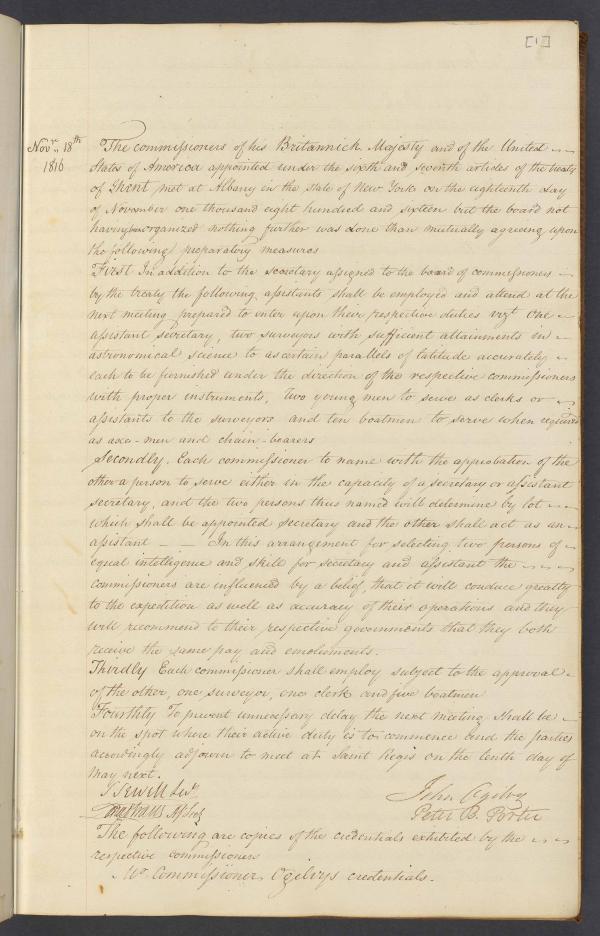 [1]
Novr. 18th
1816
The commissioners of his Britannick Majesty and of the United
States of America appointed under the sixth and seventh articles of the treaty
of Ghent met at Albany in the state of New York on the eighteenth day
of November one thousand eight hundred and sixteen but the board not
having been organized nothing further was done than mutually agreeing upon
the following preparatory measures
First In addition to the secretary assigned to the board of commissioners
by the treaty the following assistants shall be employed and attend at the
next meeting prepared to enter upon their respective duties vizt one
assistant secretary, two surveyors with sufficient attainments in
astronomical science to ascertain parallels of latitude accurately
each to be furnished under the direction of the respective commissioners
with proper instruments, two young men to serve as clerks or
assistants to the surveyors and ten boatmen to serve when required
as axe-men and chain-bearers
Secondly. Each commissioner to name with the approbation of the
other a person to serve either in the capacity of a secretary or assistant
secretary, and the two persons thus named will determine by lot
which shall be appointed secretary and the other shall act as an
assistant — — In this arrangement for selecting two persons of
equal intelligence and skill for secretary and assistant the
commissioners are influenced by a belief, that it will conduce greatly
to the expedition as well as accuracy of their operations and they
will recommend to their respective governments that they both
receive the same pay and emoluments.
Thirdly Each commissioner shall employ subject to the approval
of the other, one surveyor, one clerk and five boatmen
Fourthly To prevent unnecessary delay the next meeting shall be
on the spot where their active duty is to commence and the parties
accordingly adjourn to meet at Saint Regis on the tenth day of
May next.
S Sewell Secy
John Ogilvy
Peter B. Porter
The following are copies of the credentials exhibited by the
respective commissioners
Mr. Commissioner Ogilvys credentials.